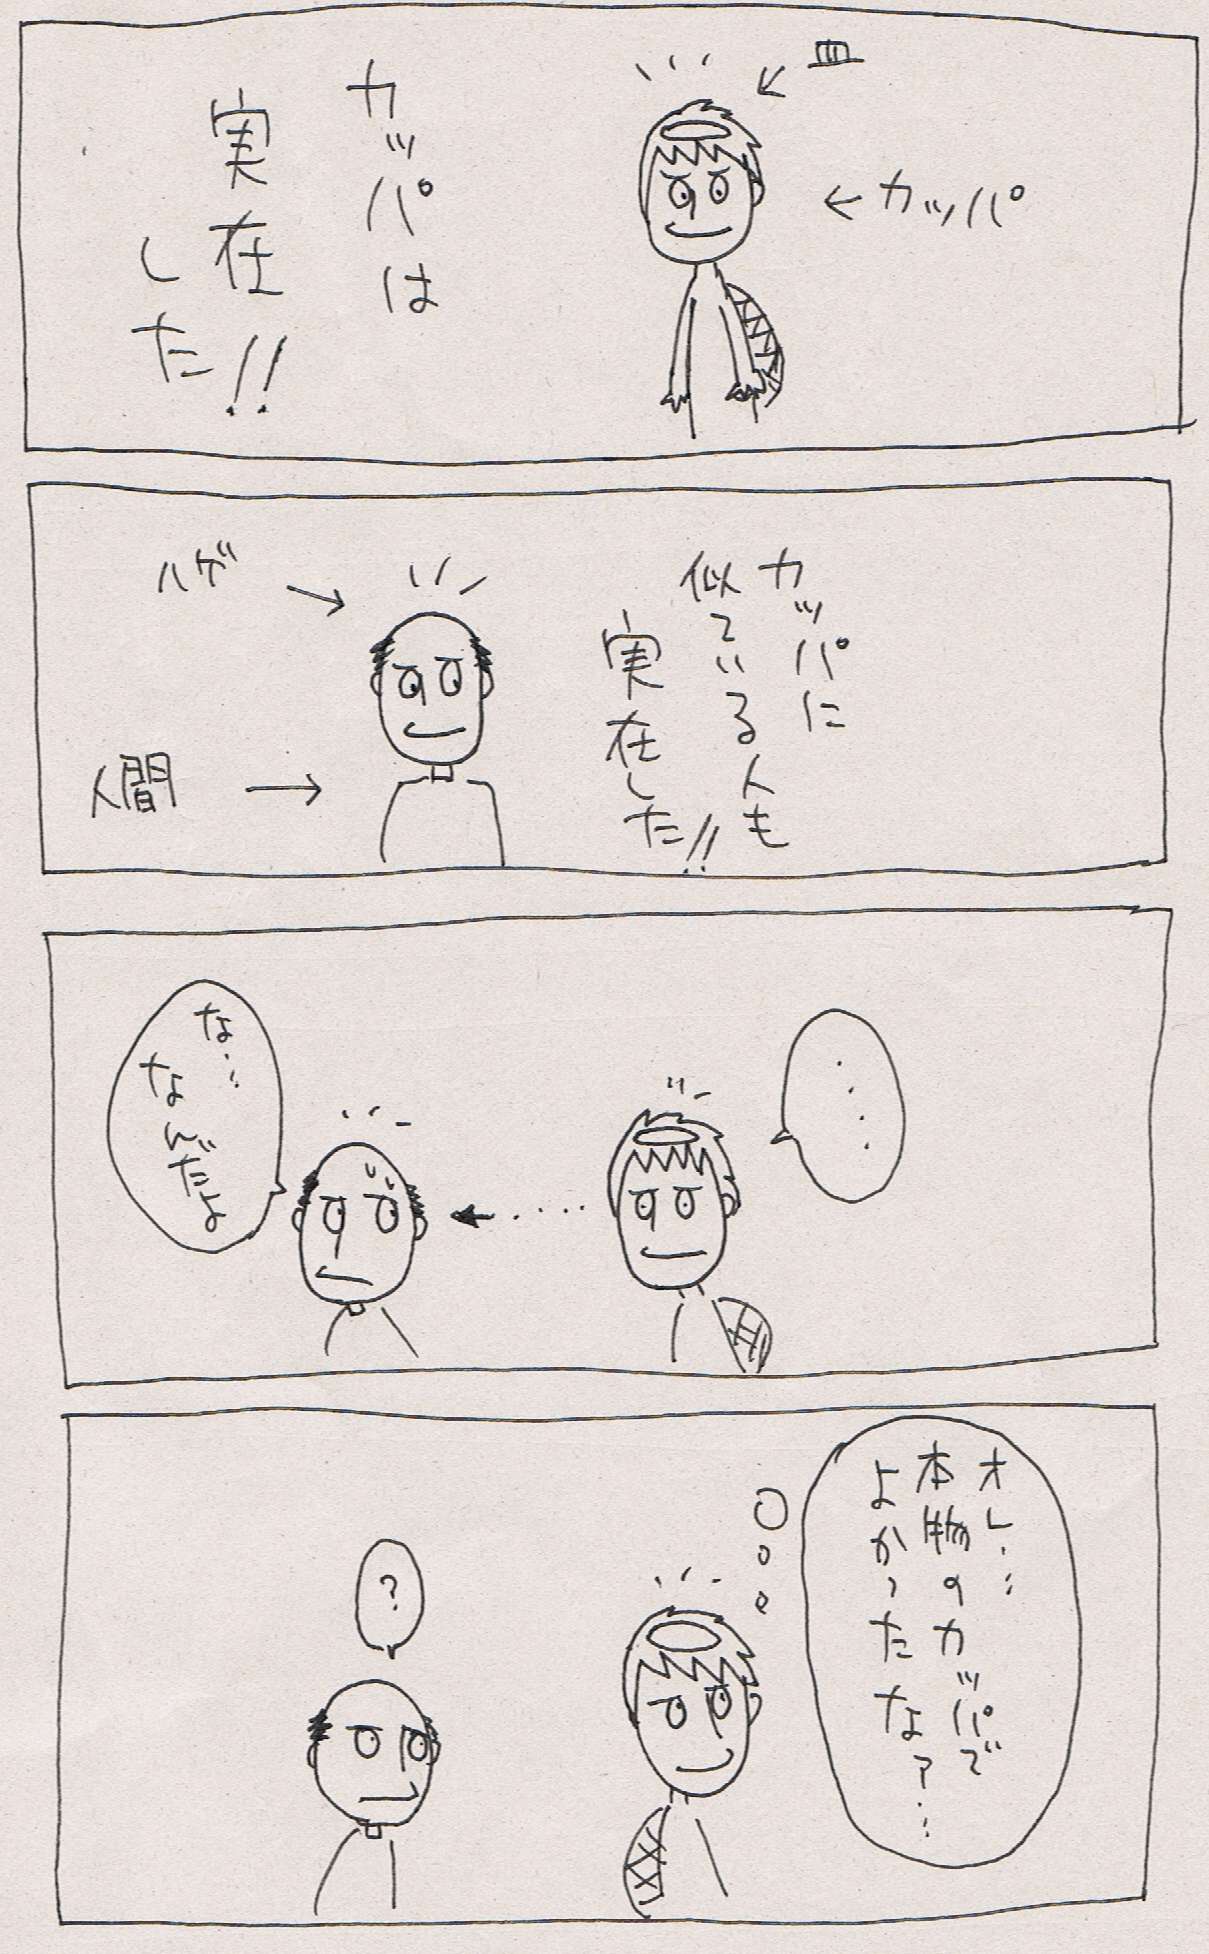 皿
カッパ
カッパは
実在
した!!
カッパに
似ている人も
実在した!!
ハゲ
人間
‥‥
な…
なんだよ
オレ……
本物のカッパで
よかったなァ…
?